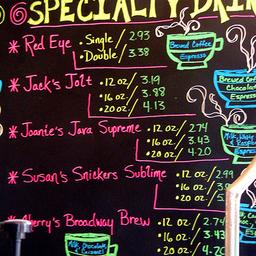 SPECIALTY DRIN
* Red Eye • Single / 2.93
• Double / 3.38
Brewed Coffee
Espresso
* Jack's Jolt • 12 oz / 3.19
• 16 oz / 3.88
• 20 oz / 4.13
Brewed Coffee
Chocolate
Espresso
* Joanie's Java Supreme • 12 oz / 2.74
• 16 oz / 3.43
• 20 oz / 4.20
Milk, White
* Susan's Snickers Sublime • 12 oz / 2.99
• 16 oz / 3.
• 20 oz /
* Cherry's Broadway Brew • 12 oz / 2.74
• 16 oz / 3.43
• 20 oz / 4.20
Milk, Chocolate
& Caramel